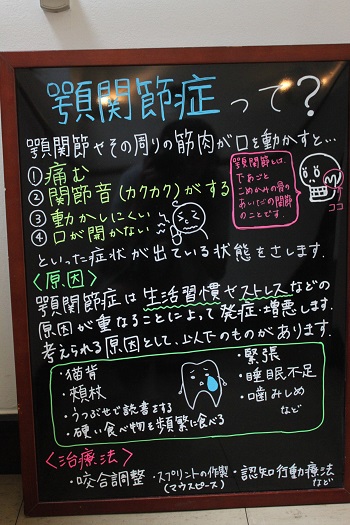 顎関節症って？
顎関節やその周りの筋肉が口を動かすと…
①痛む
②関節音(カクカク)がする
③動かしにくい
④口が開かない
顎関節とは、
下あごと
こめかみの骨の
あいだの関節
のことです。
ココ
といった症状が出ている状態をさします。
〈原因〉
顎関節症は生活習慣やストレスなどの
原因が重なることによって発症・増悪します。
考えられる原因として、以下のものがあります。
・猫背
・頬杖
・うつぶせで読書をする
・硬い食べ物を頻繁に食べる
・緊張
・睡眠不足
・噛みしめ
など
〈治療法〉
・咬合調整
・スプリントの作製
(マウスピース)
・認知行動療法
など